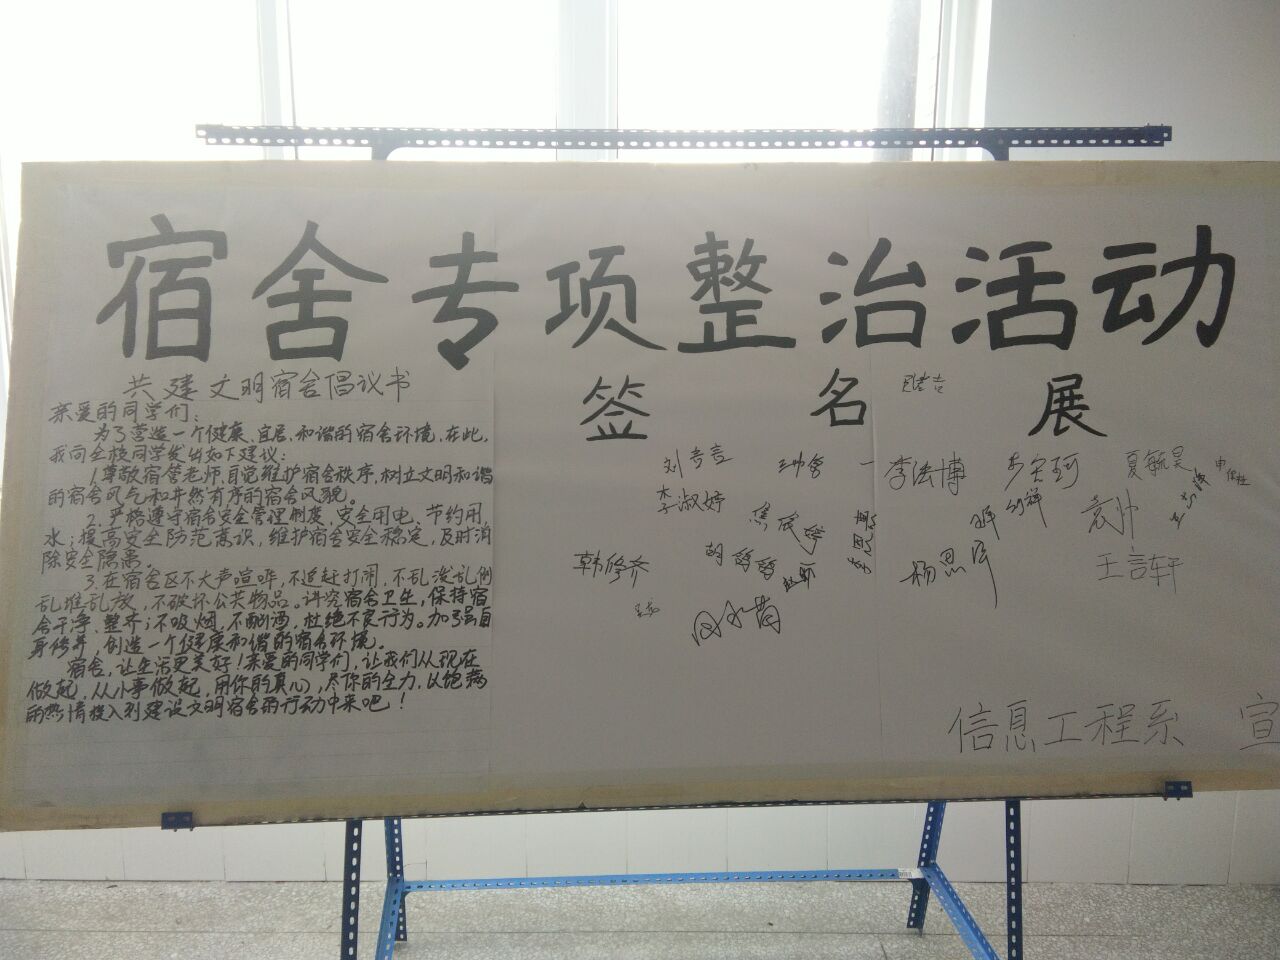 宿舍专项整治活动
签名展
共建文明宿舍倡议书
亲爱的同学们:
为了营造一个健康、宜居、和谐的宿舍环境,在此,
我向全校同学发出如下建议:
1.尊敬宿管老师,自觉维护宿舍秩序,树立文明和谐
的宿舍风气和井然有序的宿舍风貌。
2.严格遵守宿舍安全管理制度,安全用电、节约用
水;提高安全防范意识,维护宿舍安全稳定,及时消
除安全隐患。
3.在宿舍区不大声喧哗,不追赶打闹,不乱泼乱倒
乱堆乱放,不破坏公共物品。讲究宿舍卫生,保持宿
舍干净、整齐;不吸烟,不酗酒,杜绝不良行为。加强自
身修养,创造一个健康和谐的宿舍环境。
宿舍,让生活更美好!亲爱的同学们,让我们从现在
做起,从小事做起,用你的真心,尽你的全力,以饱满
的热情投入到建设文明宿舍的行动中来吧!
李法博
李淑婷
韩修齐
杨思宇
袁帅
王言轩
信息工程系 宣